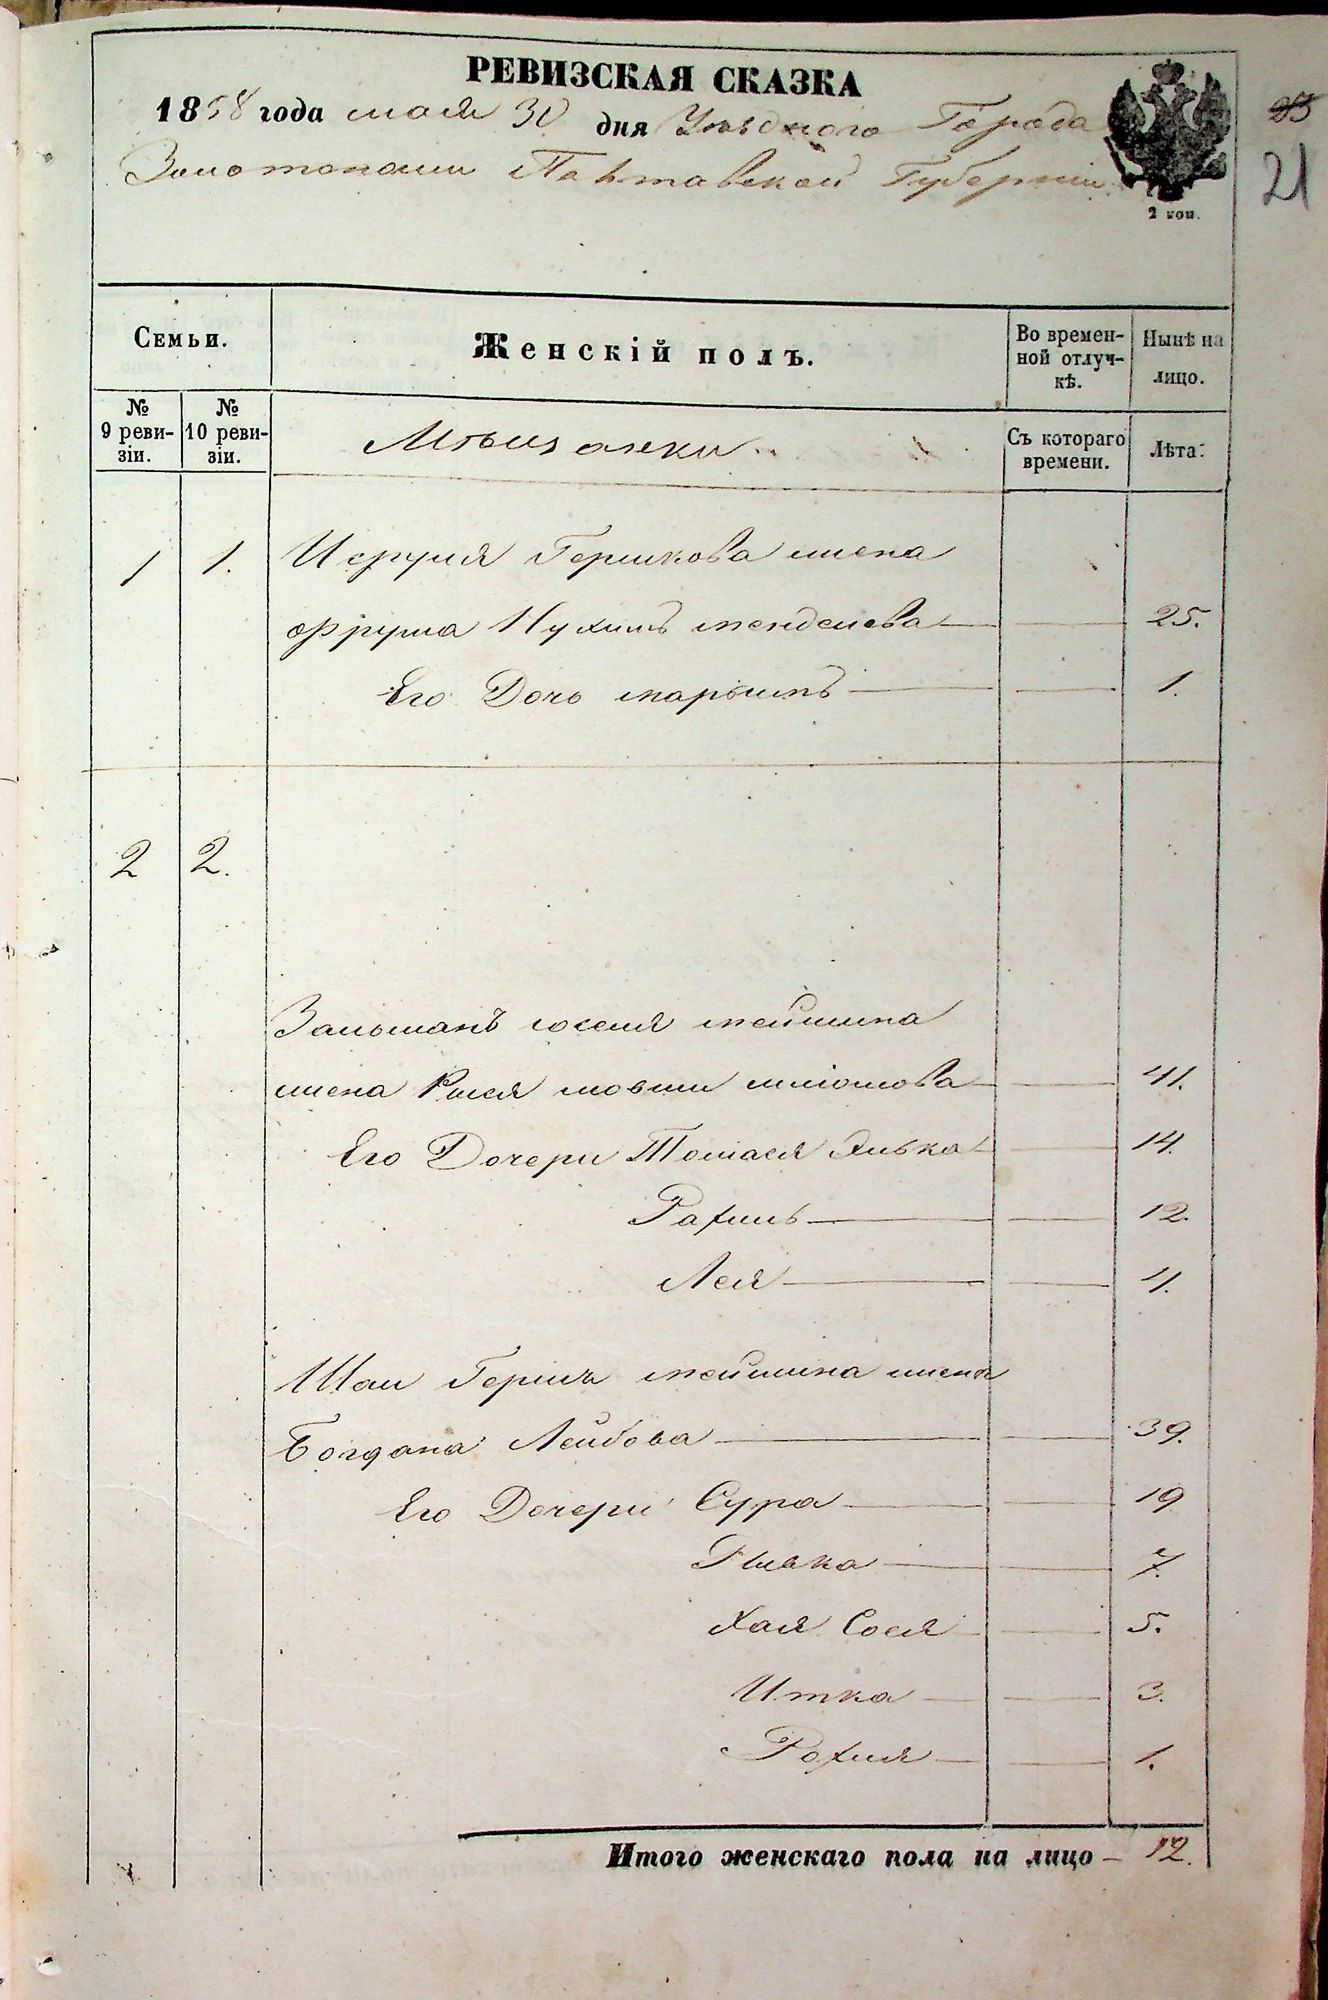 РЕВИЗСКАЯ СКАЗКА
1858 года мая 30 дня Уезднаго Города
Золотоноши Полтавской Губернии
2 коп.
21
Семьи.
Женскій полъ.
Во времен-
ной отлуч-
кѣ.
Нынѣ на
лицо.
№
9 реви-
зіи.
№
10 реви-
зіи.
Мѣщанки
Съ котораго
времени.
Лѣта.
1 1. Гершкова жена
Фрума Нухимъ Менделева 25.
Его Дочь 1.
2 2.
Зальманъ
жена Рися Мовши 41.
Его Дочери 14.
Рахиль 12.
Лея 4.
Шаи Гершъ жена
Богдана Лейбова 39.
Его Дочери Сура 19
Ривка 7.
Хая Сося 5.
Итка 3.
1.
Итого женскаго пола на лицо 12.